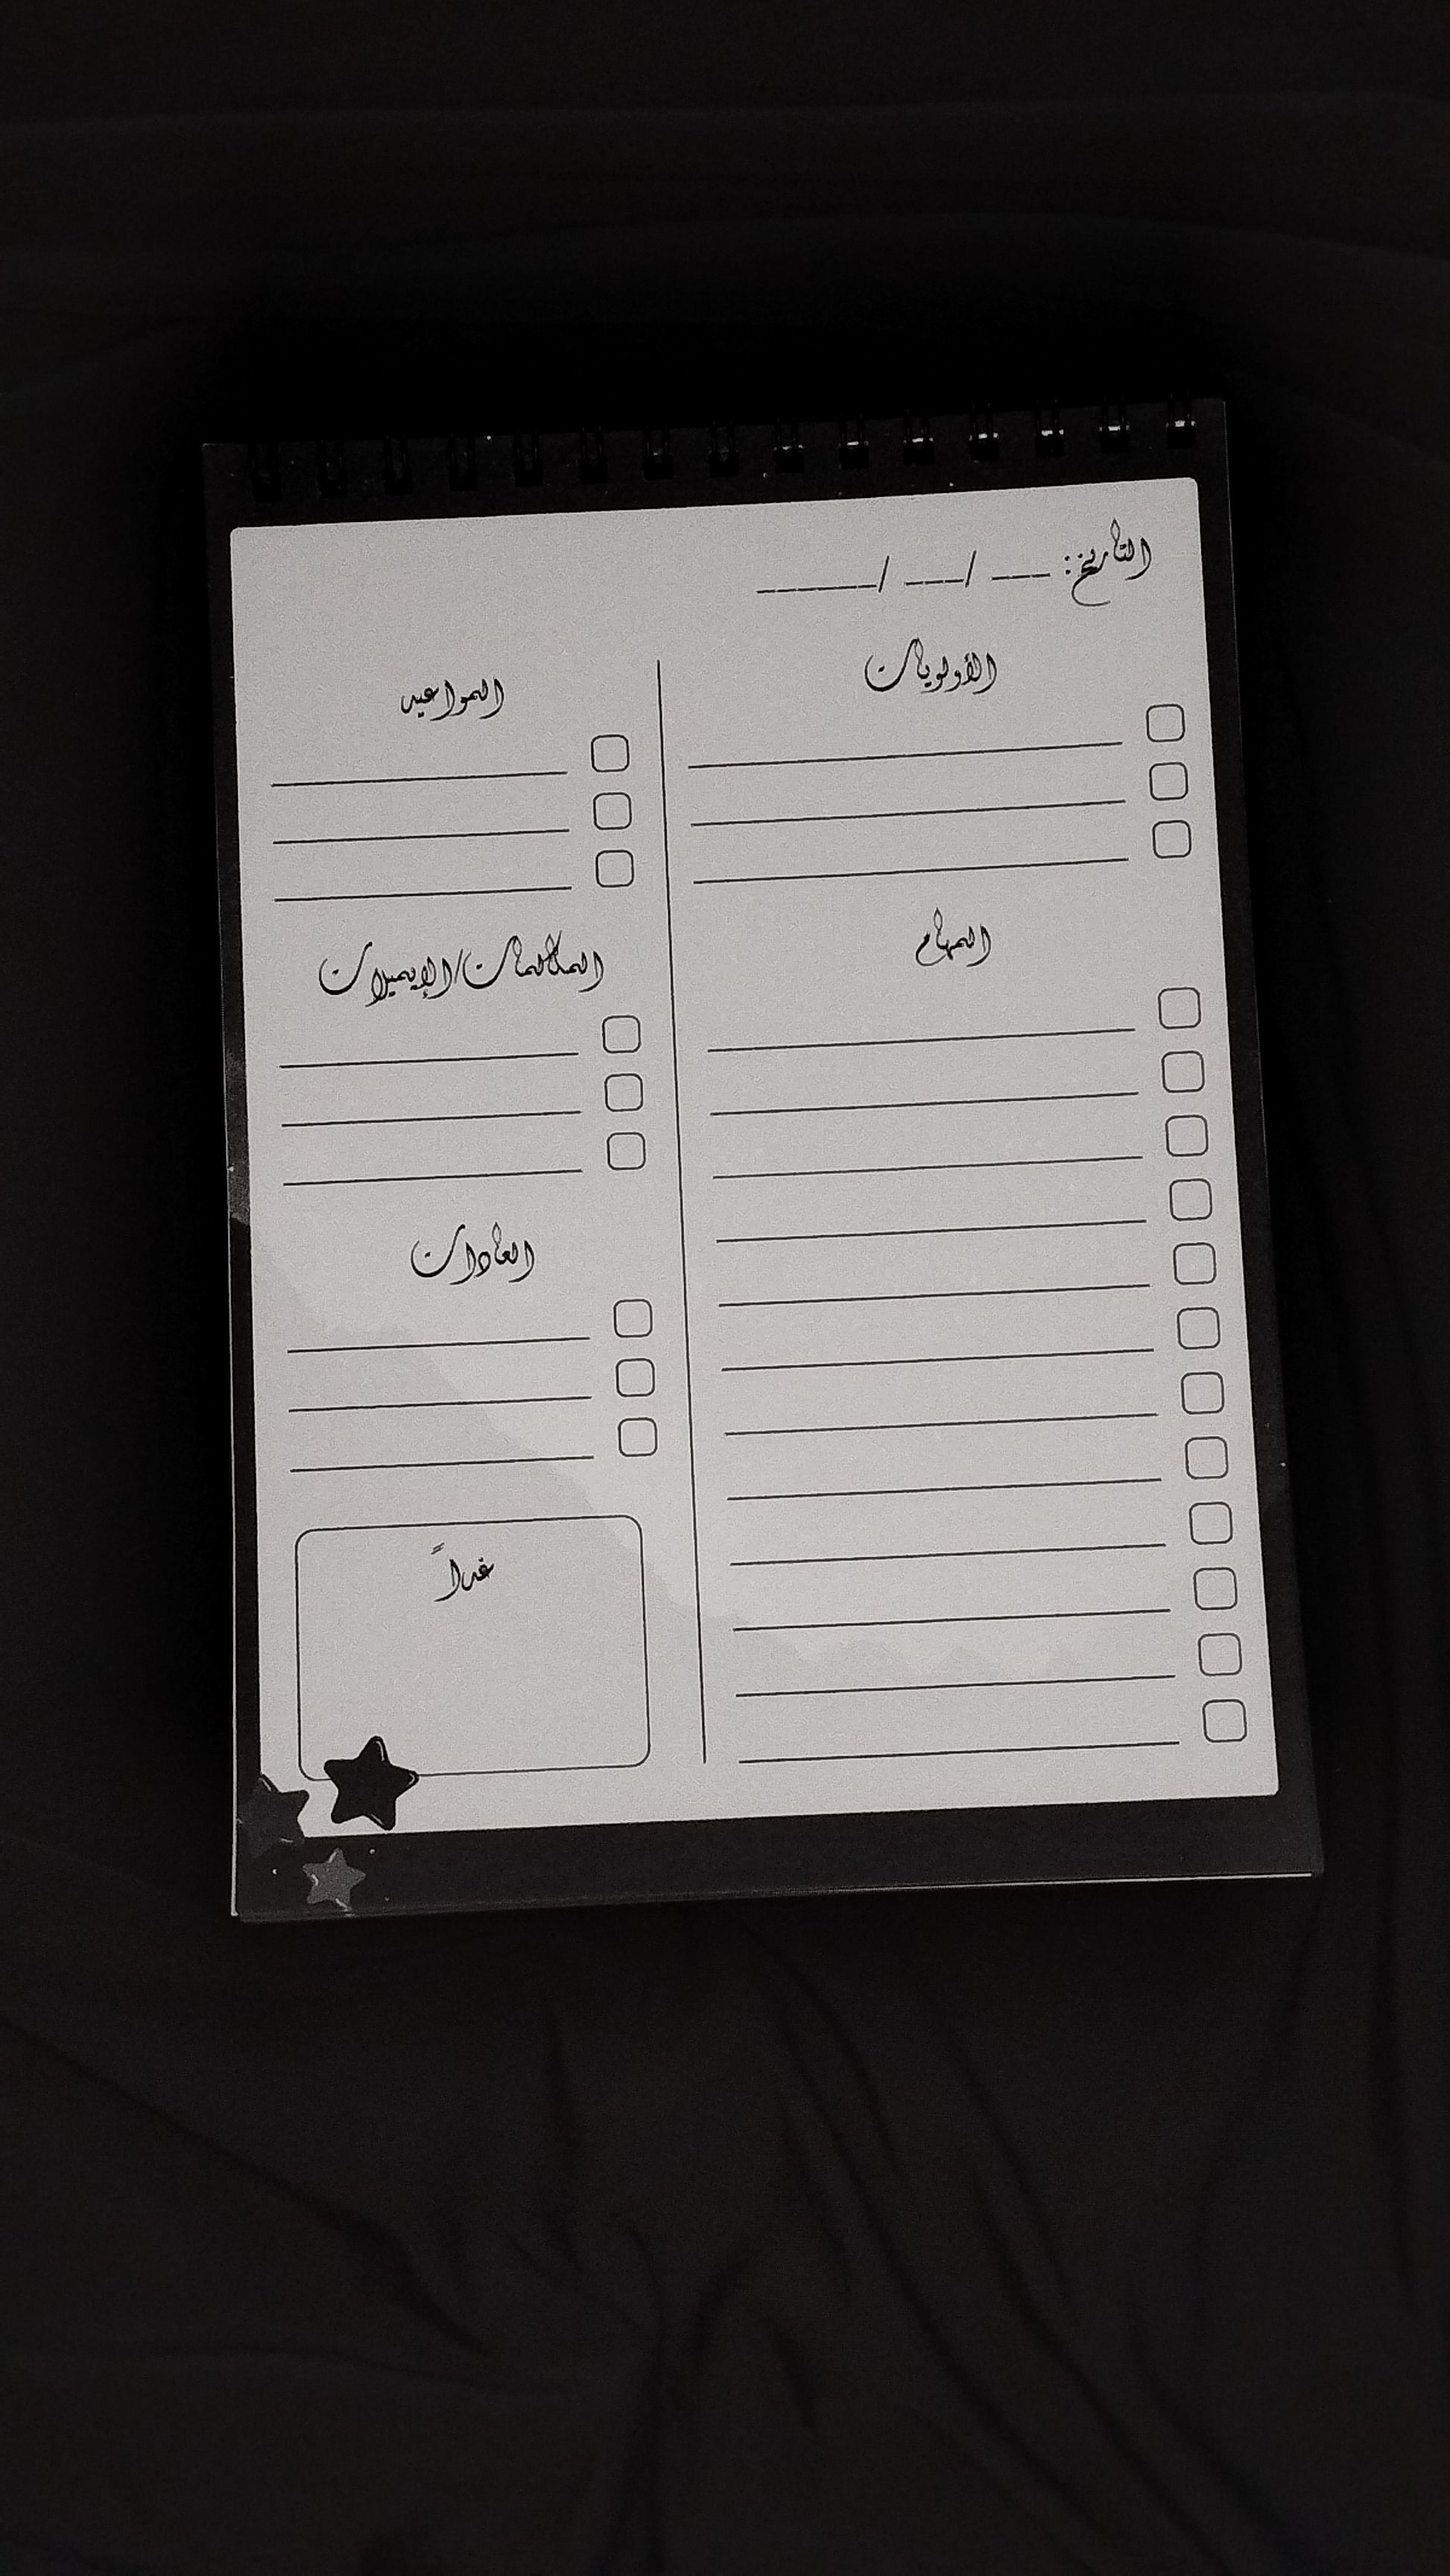 التاريخ: ___ /___ /______
الأولويات
المهام
المواعيد
المكالمات/الإيميلات
العادات
غداً